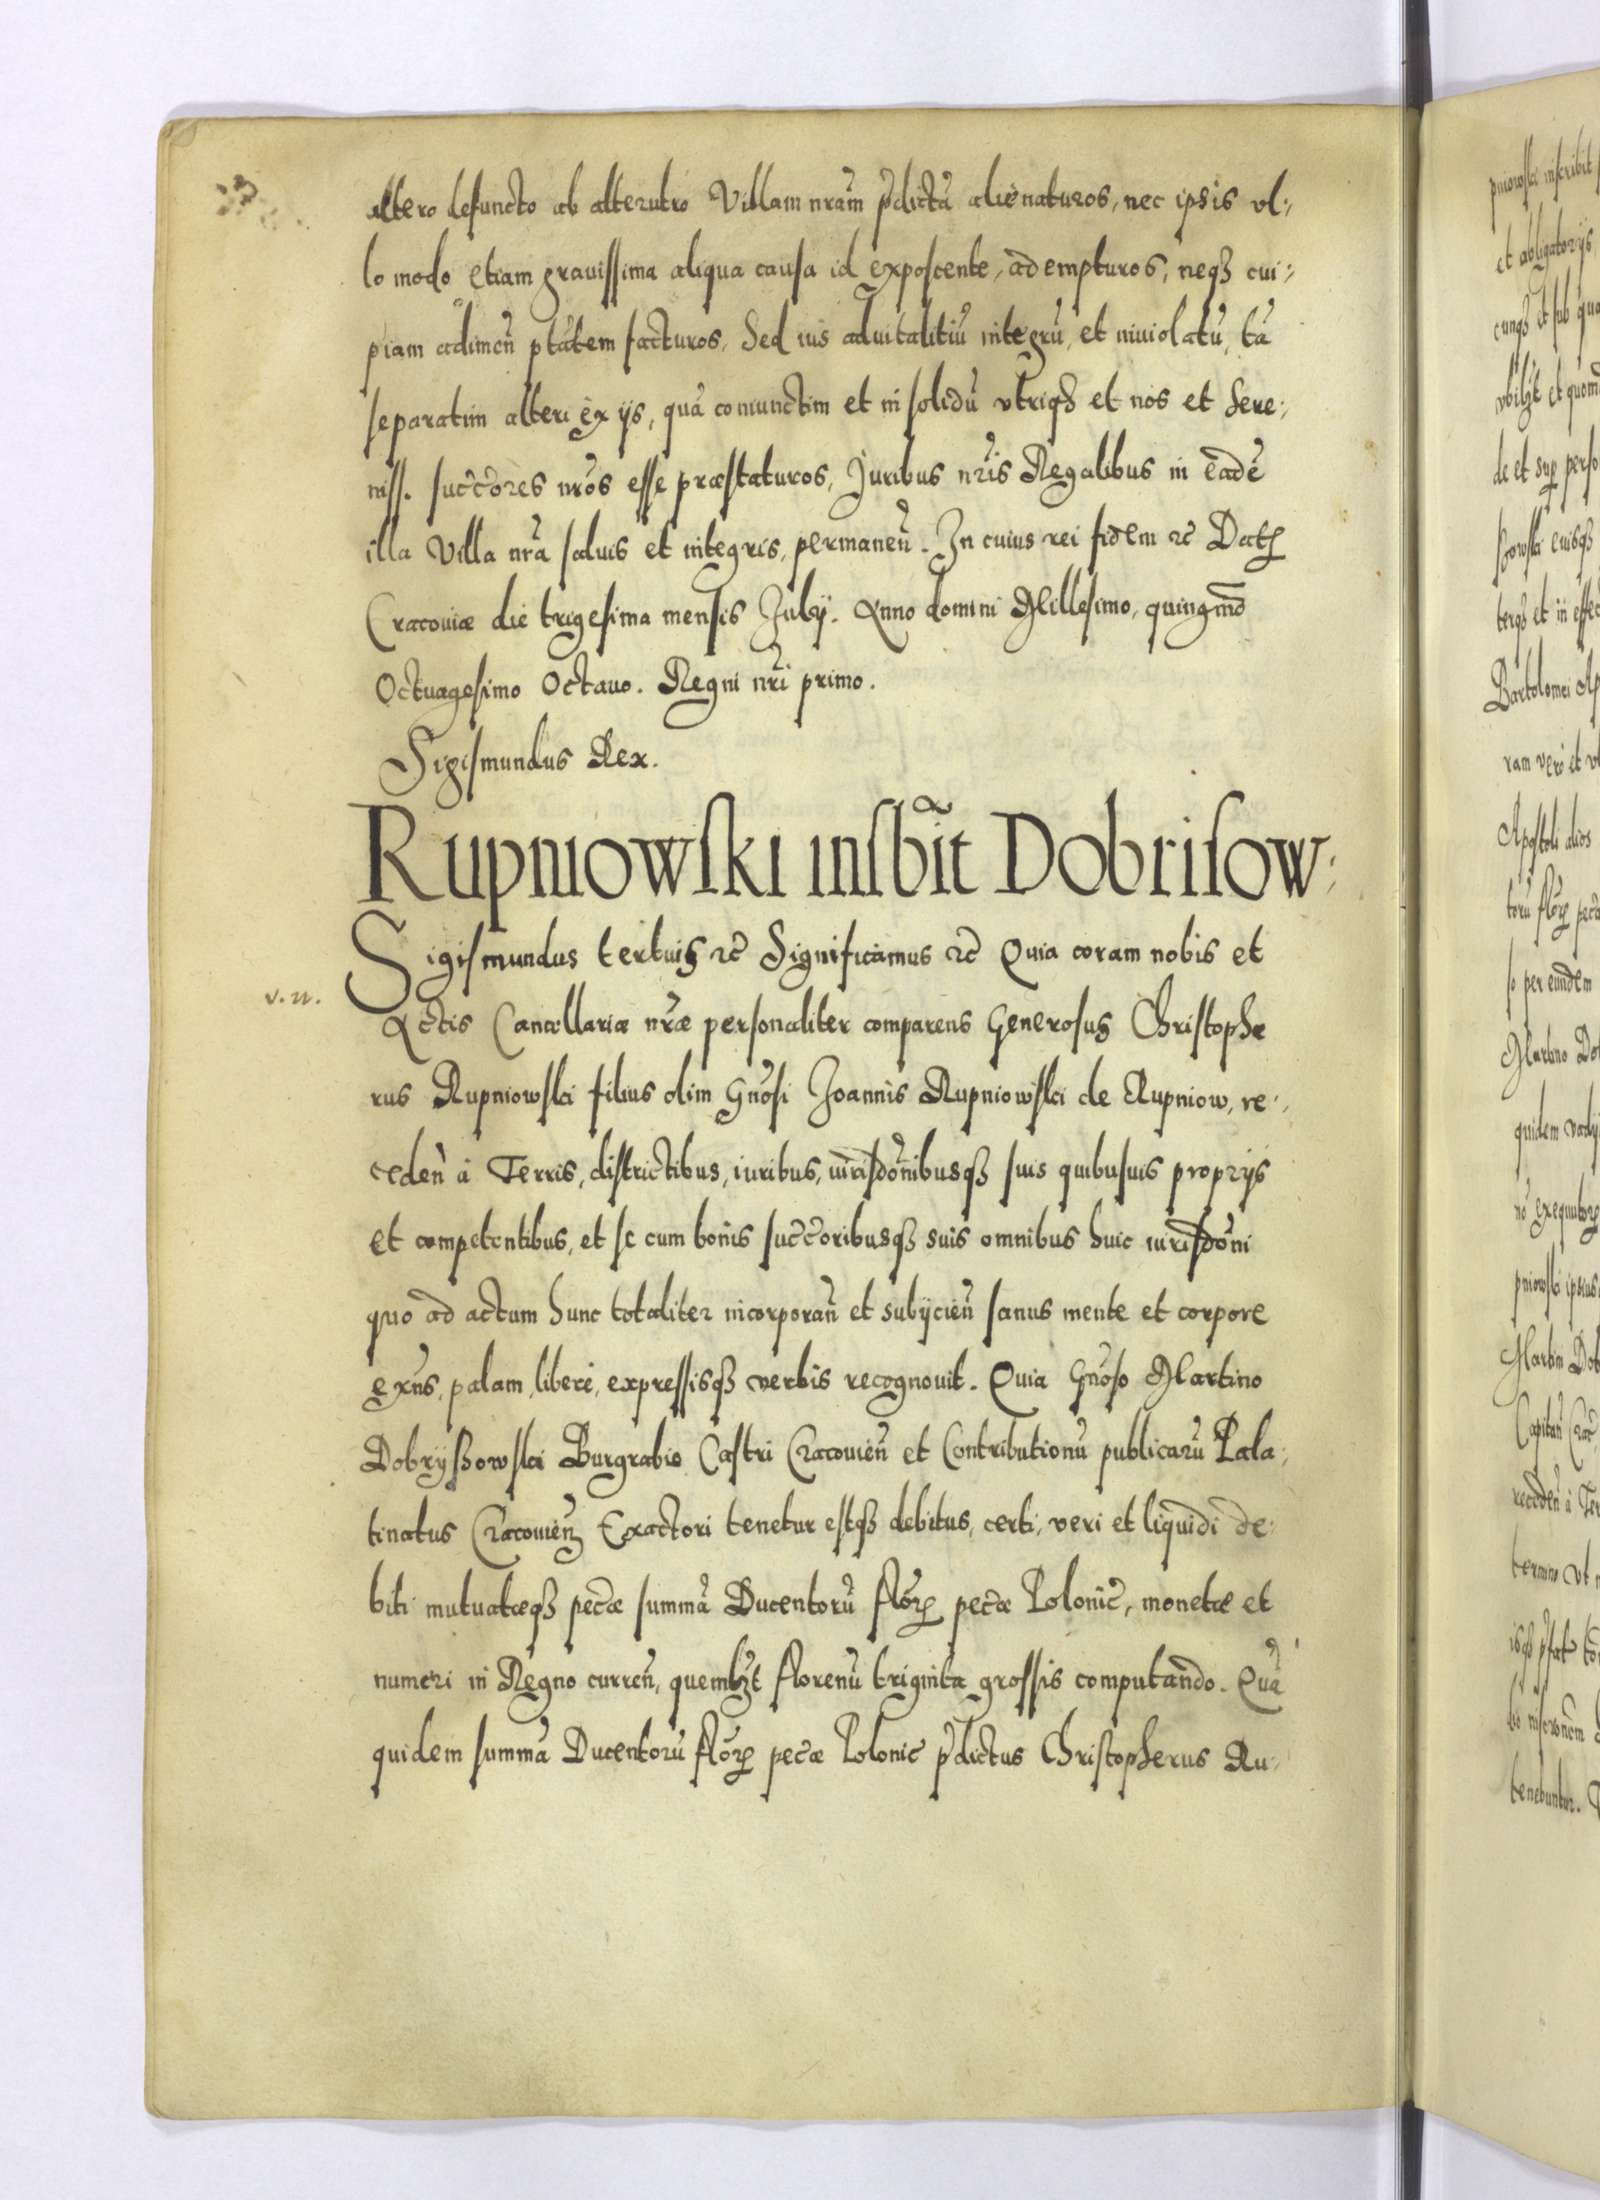 altero defuncto ab alterutro Villam nram̃ p̃dictã alienaturos, nec ipsis vl-
lo modo etiam grauissima aliqua causa id exposcente, adempturos, neqꝫ cui-
piam adimeñ ptãtem facturos, Sed ius aduitalitiũ integrũ, et inuiolatũ, tã
separatim alteri ex ijs, quã coniunctim et in solidũ vtriqꝫ et nos et Sere-
niss. succ̃ores nr̃os esse præstaturos, Juribus nr̃is Regalibus in eadẽ
illa Villa nr̃a saluis et integris, permaneñ. In cuius rei fidem ꝛc̃ Datꝭ
Cracouiæ die trigesima mensis Julÿ. Anno domini Millesimo, quingmõ
Octuagesimo Octauo. Regni nr̃i primo.
Sigismundus Rex.
Rupniowski insb̃it Dobrisow-
Sigismundus tertius ꝛc̃ Significamus ꝛc̃ Quia coram nobis et
v. n.
Actis Cancellariæ nr̃æ personaliter comparens Generosus Christophe
rus Rupniowski filius olim Gnõsi Joannis Rupniowski de Rupniow, re-
cedeñ à Terris, districtibus, iuribus, iurisdõnibusqꝫ suis quibusuis proprijs
et competentibus, et se cum bonis succ̃oribusqꝫ suis omnibus huic iurisdõni
quo ad actum hunc totaliter incorporañ et subijcieñ sanus mente et corpore
exñs, palam, liberè, expressisqꝫ verbis recognouit. Quia Gnõso Martino
Dobryßowski Burgrabio Castri Cracouieñ et Contributionũ publicarũ Pala-
tinatus Cracouieñ Exactori tenetur estqꝫ debitus, certi, veri et liquidi de-
biti mutuatæqꝫ pec̃æ summã Ducentorũ flõrꝭ pec̃æ Polonic̃, monetæ et
numeri in Regno curreñ, quemlꝫt florenũ triginta grossis computando. Quã
quidem summã Ducentorũ flõrꝭ pec̃æ Polonic̃ p̃dictus Christopherus Ru-